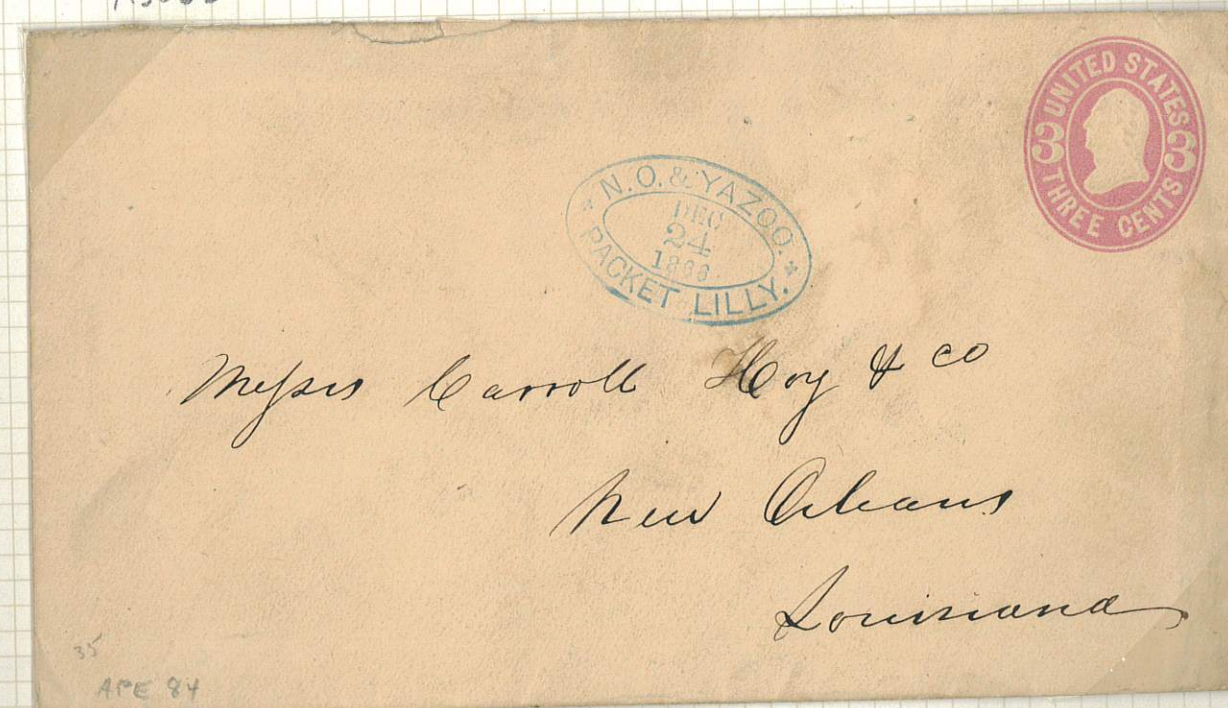 UNITED STATES
3 3
THREE CENTS
* N.O. & YAZOO. *
DEC
24
PACKET LILLY.
Messrs Carroll Hoy & co
New Orleans
Louisiana
35
APE 84